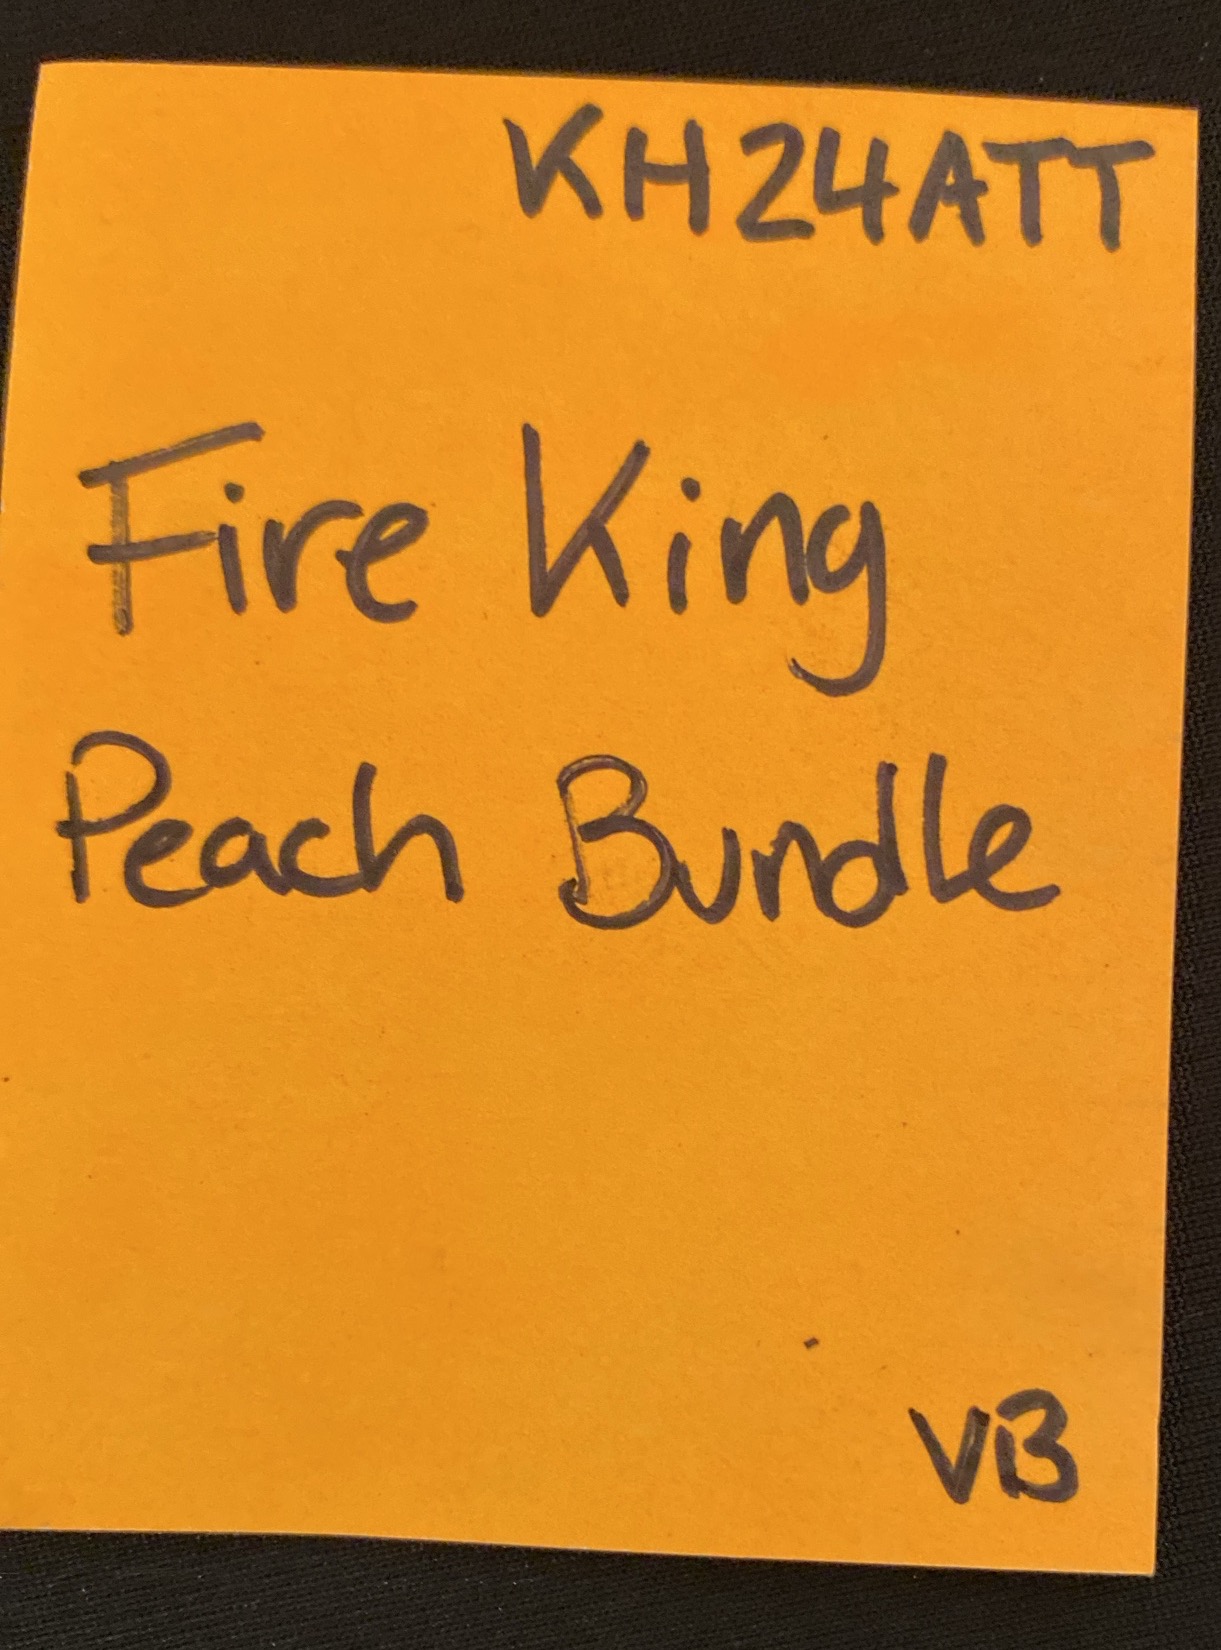 KH24ATT
Fire King
Peach Bundle
VB